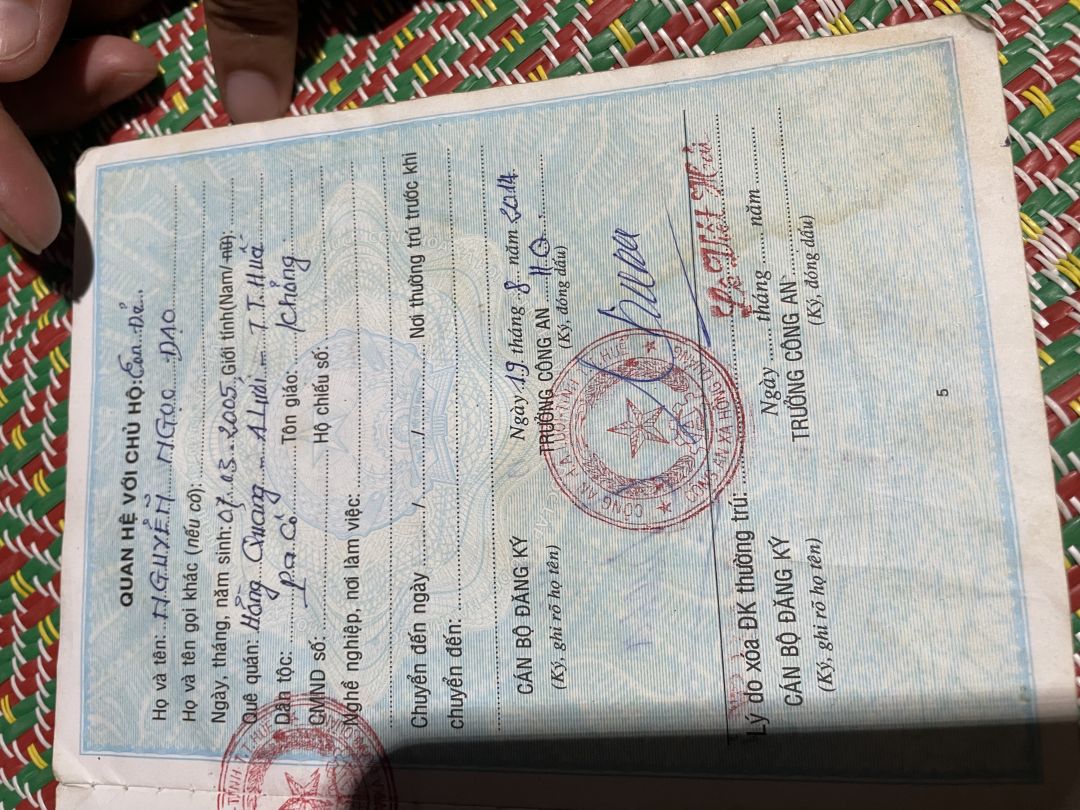 QUAN HỆ VỚI CHỦ HỘ: Con Đẻ
Họ và tên: NGUYỄN NGỌC ĐẠO
Họ và tên gọi khác (nếu có):
Ngày, tháng, năm sinh: 07.03.2005 Giới tính (Nam/nữ):
Quê quán: Hồng Quảng A Lưới T.T.Huế
Dân tộc: Pa Cô Tôn giáo: không
CMND số: Hộ chiếu số:
Nghề nghiệp, nơi làm việc:
Chuyển đến ngày / / Nơi thường trú trước khi
chuyển đến:
Ngày 19 tháng 8 năm 2014
CÁN BỘ ĐĂNG KÝ TRƯỞNG CÔNG AN HQ
(Ký, ghi rõ họ tên) (Ký, đóng dấu)
Lê Viết Hải
Lý do xóa ĐK thường trú:
Ngày tháng năm
CÁN BỘ ĐĂNG KÝ TRƯỞNG CÔNG AN
(Ký, ghi rõ họ tên) (Ký, đóng dấu)
5